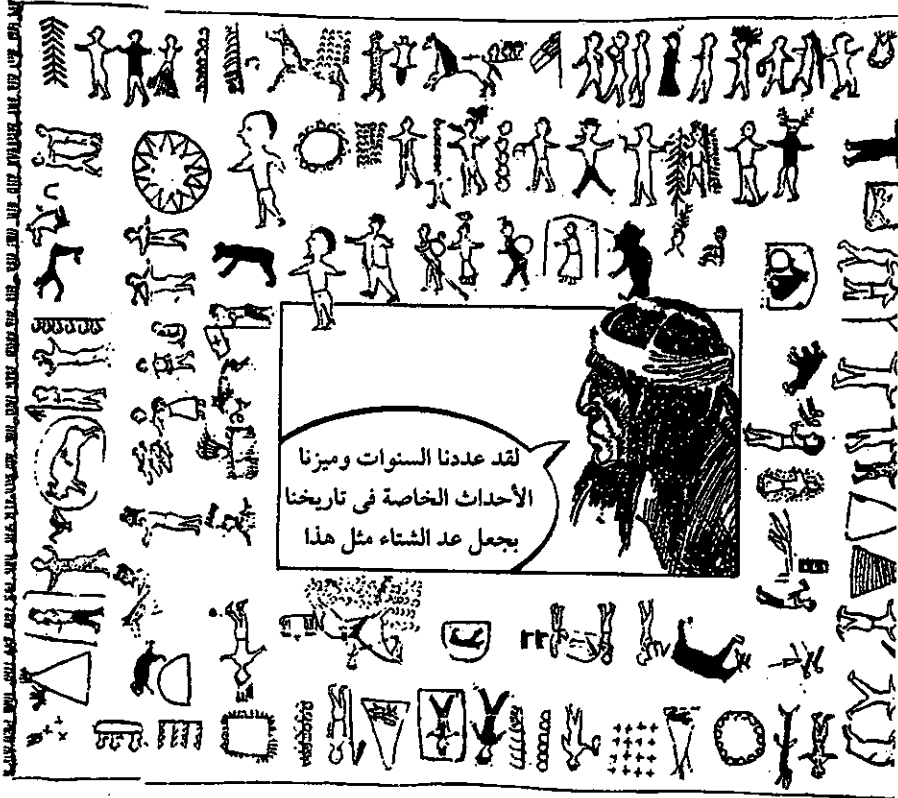 لقد عددنا السنوات وميزنا
الأحداث الخاصة فى تاريخنا
بجعل عد الشتاء مثل هذا